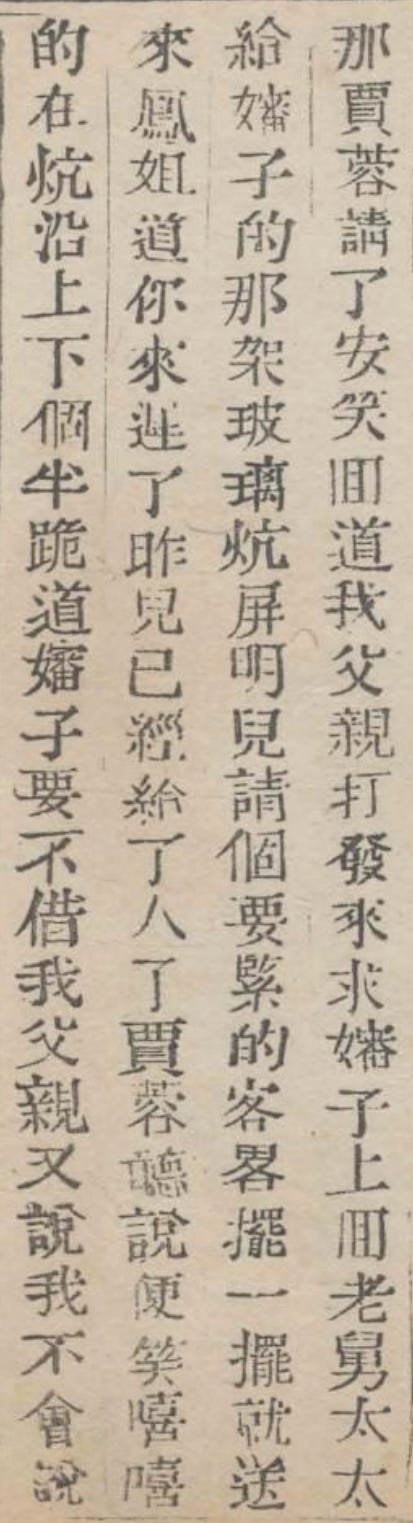 那賈蓉請了安笑囬道我父親打發來求嬸子上囬老舅太太
給嬸子的那架玻璃炕屏明兒請個要緊的客畧擺一擺就送
來鳳姐道你來遲了昨兒已經給了人了賈蓉聽說便笑嘻嘻
的在炕沿上下個半跪道嬸子要不借我父親又說我不會說